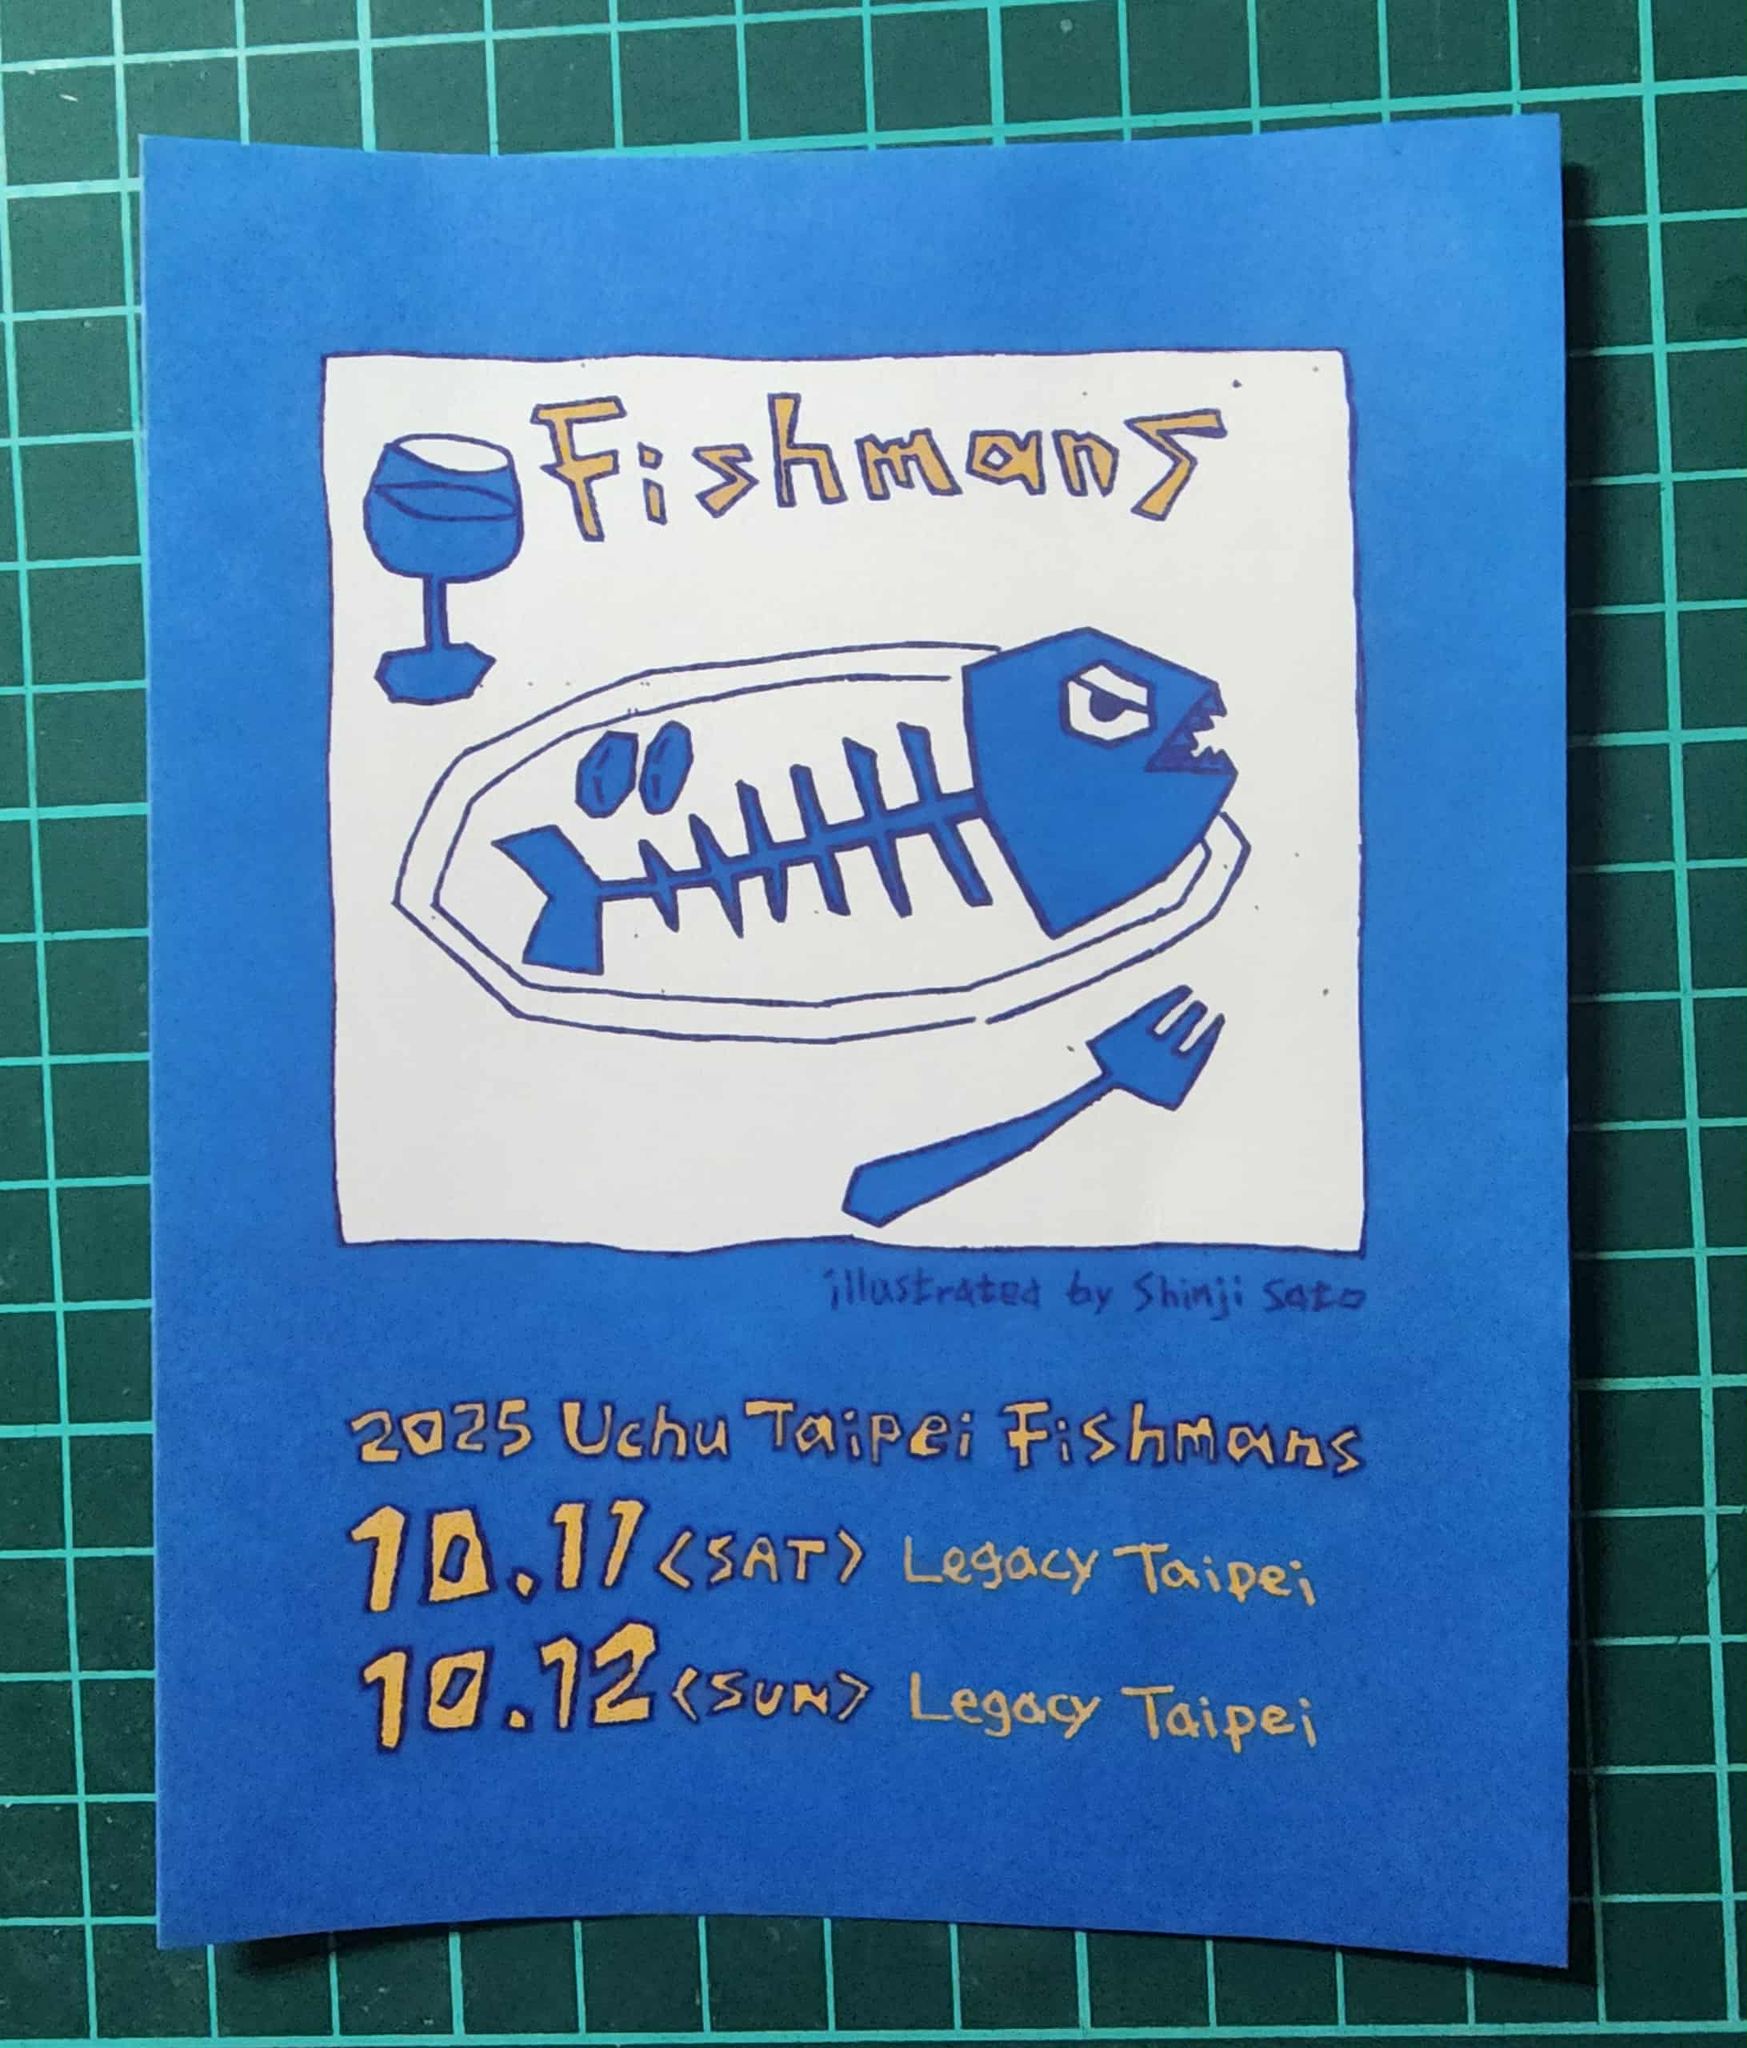 Fishmans
illustrated by Shinji Sato
2025 Uchu Taipei Fishmans
10.11 <SAT> Legacy Taipei
10.12 <SUN> Legacy Taipei